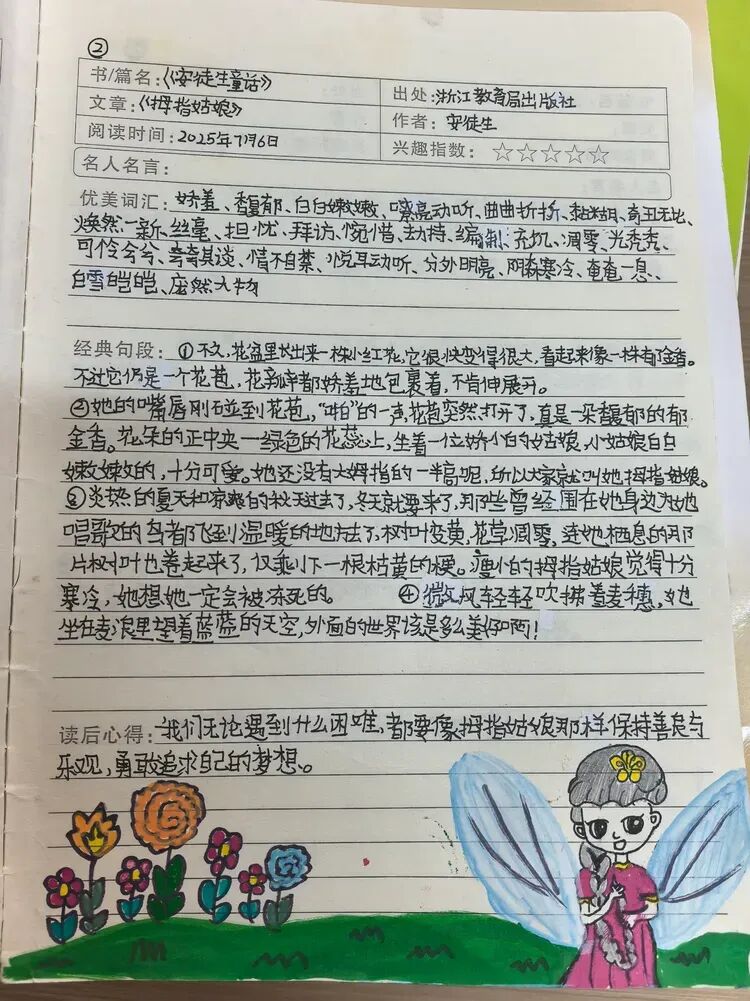 ②
书/篇名：《安徒生童话》 出处：浙江教育局出版社
文章：《拇指姑娘》 作者：安徒生
阅读时间：2025年7月6日 兴趣指数：☆☆☆☆☆
名人名言：
优美词汇：娇羞、馥郁、白白嫩嫩、嘹亮动听、曲曲折折、黏糊、奇丑无比、
焕然一新、丝毫、担忧、拜访、惋惜、劫持、编制、充饥、凋零、光秃秃、
可伶兮兮、夸夸其谈、情不自禁、悦耳动听、分外明亮、阴森寒冷、奄奄一息、
白雪皑皑、庞然大物
经典句段：①不久，花盆里长出来一株小红花，它很快变得很大，看起来像一株郁金香。
不过它仍是一个花苞，花瓣都娇羞地包裹着，不肯伸展开。
②她的嘴唇刚碰到花苞，“啪”的一声，花苞突然打开了，真是一朵馥郁的郁
金香。花朵的正中央一绿色的花蕊上，坐着一位娇小的姑娘，小姑娘白白
嫩嫩嫩的，十分可爱。她还没有大姆指的一半高呢，所以大家就叫她拇指姑娘。
③炎热的夏天和凉爽的秋天过去了，冬天就要来了，那些曾经围在她身边为她
唱歌的鸟都飞到温暖的地方去了，树叶变黄，花草凋零，连她栖息的那
片树叶也卷起来了，仅剩下一根枯黄的梗。瘦小的拇指姑娘觉得十分
寒冷，她想她一定会被冻死的。 ④微风轻轻吹拂着麦穗，她
坐在麦浪里望着蓝蓝的天空，外面的世界该是多么美好啊！
读后心得：我们无论遇到什么困难，都要像拇指姑娘那样保持善良与
乐观，勇敢追求自己的梦想。